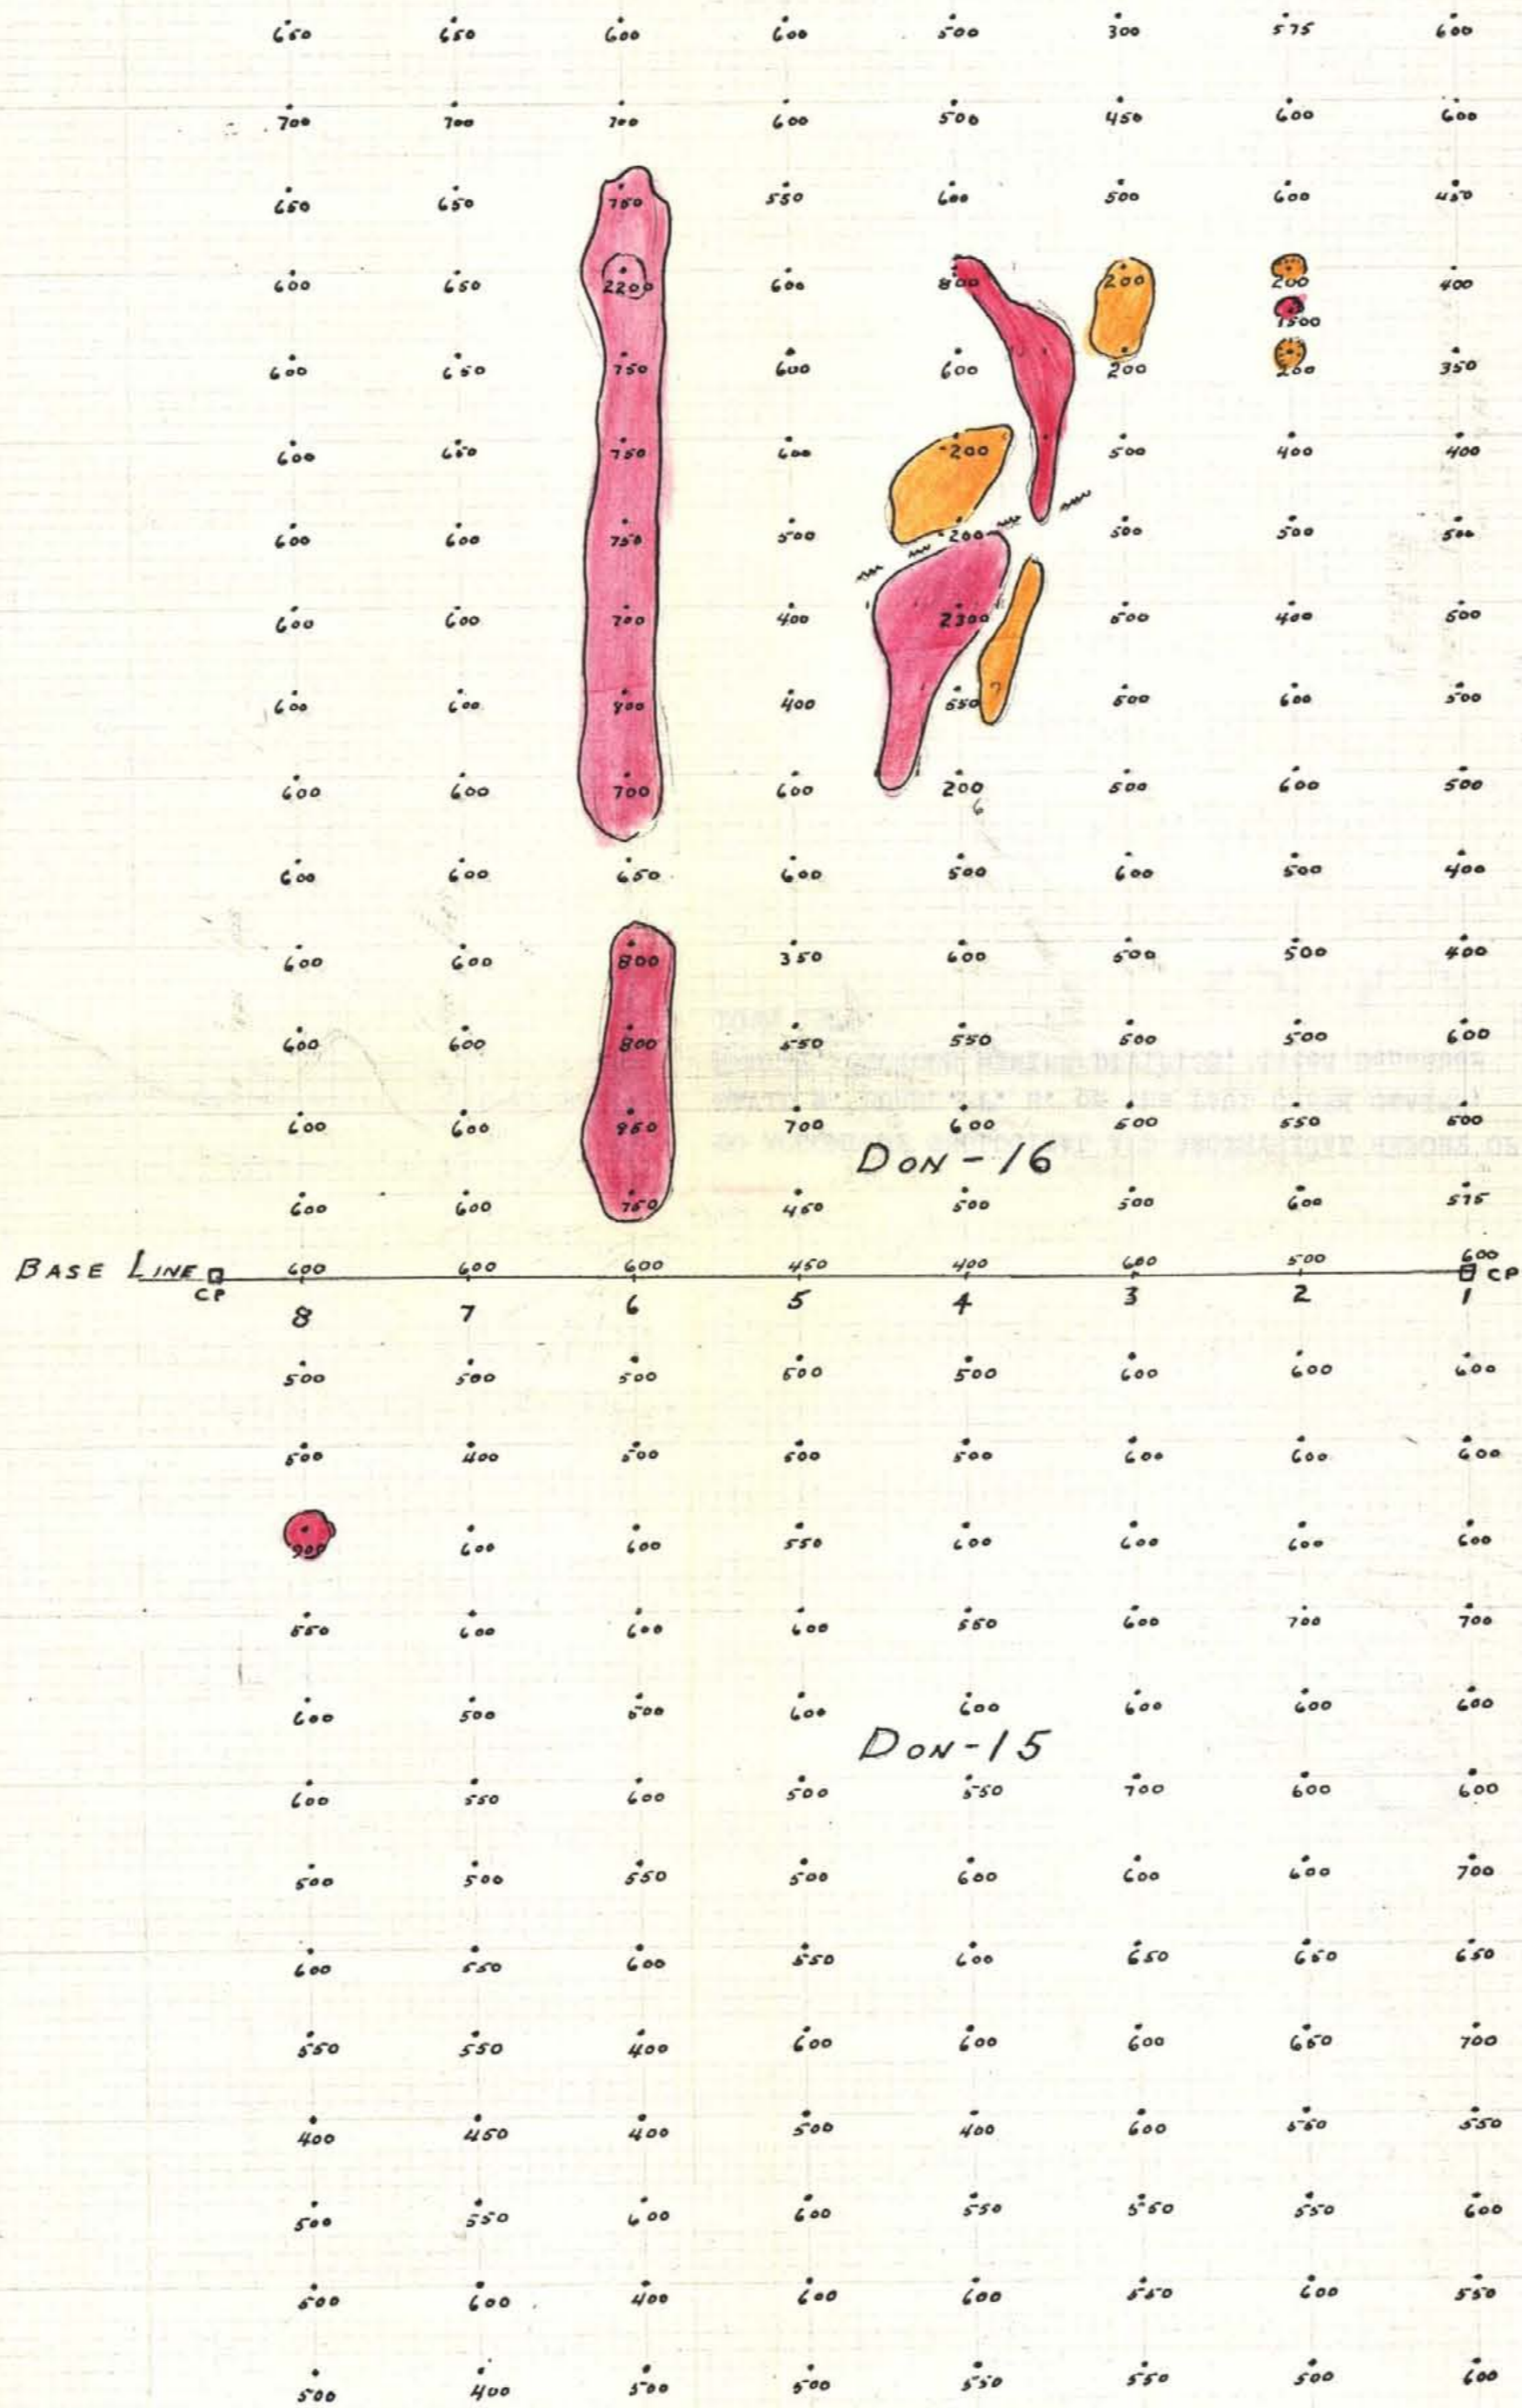 650 650 600 600 500 300 575 600
700 700 700 600 500 450 600 600
650 650 750 550 600 500 600 450
600 650 2200 600 800 200 200 400
1500
600 650 750 600 600 200 200 350
600 650 750 600 -200 500 400 400
600 600 750 500 -200 500 500 500
600 600 700 400 2300 500 400 500
600 600 800 400 550 ? 500 600 500
600 600 700 600 200 500 600 500
6
600 600 650 600 500 600 500 400
600 600 800 350 600 500 500 400
600 600 800 550 550 500 500 600
600 600 950 700 600 500 550 500
DON-16
600 600 750 450 500 500 600 575
BASE LINE 600 600 600 450 400 600 500 600
CP CP
8 7 6 5 4 3 2 1
500 500 500 500 500 600 600 600
500 400 500 500 500 600 600 600
900 600 600 550 600 600 600 600
550 600 600 600 550 600 700 700
600 500 500 600 600 600 600 600
DON-15
600 550 600 500 550 700 600 600
500 500 550 500 600 600 600 700
600 550 600 550 600 650 650 650
550 550 400 600 600 600 650 700
400 450 400 500 400 600 550 550
500 550 600 600 550 550 550 600
500 600 400 600 600 550 600 550
500 400 500 500 550 550 500 600